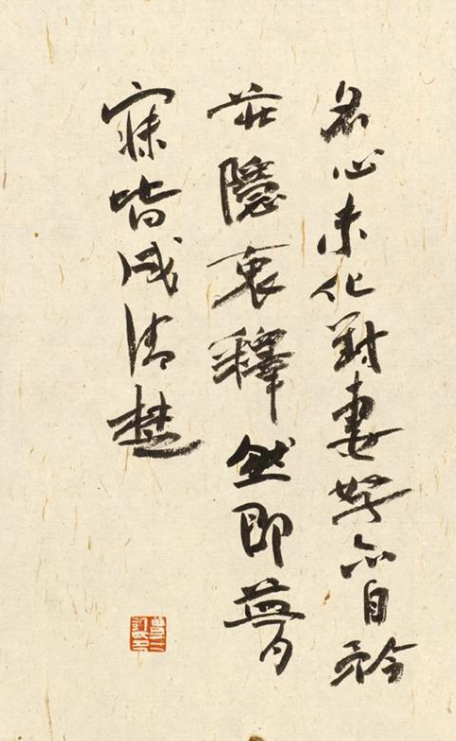 名心未化對妻孥亦自矜
莊隱衷釋然即夢
寐皆成清楚